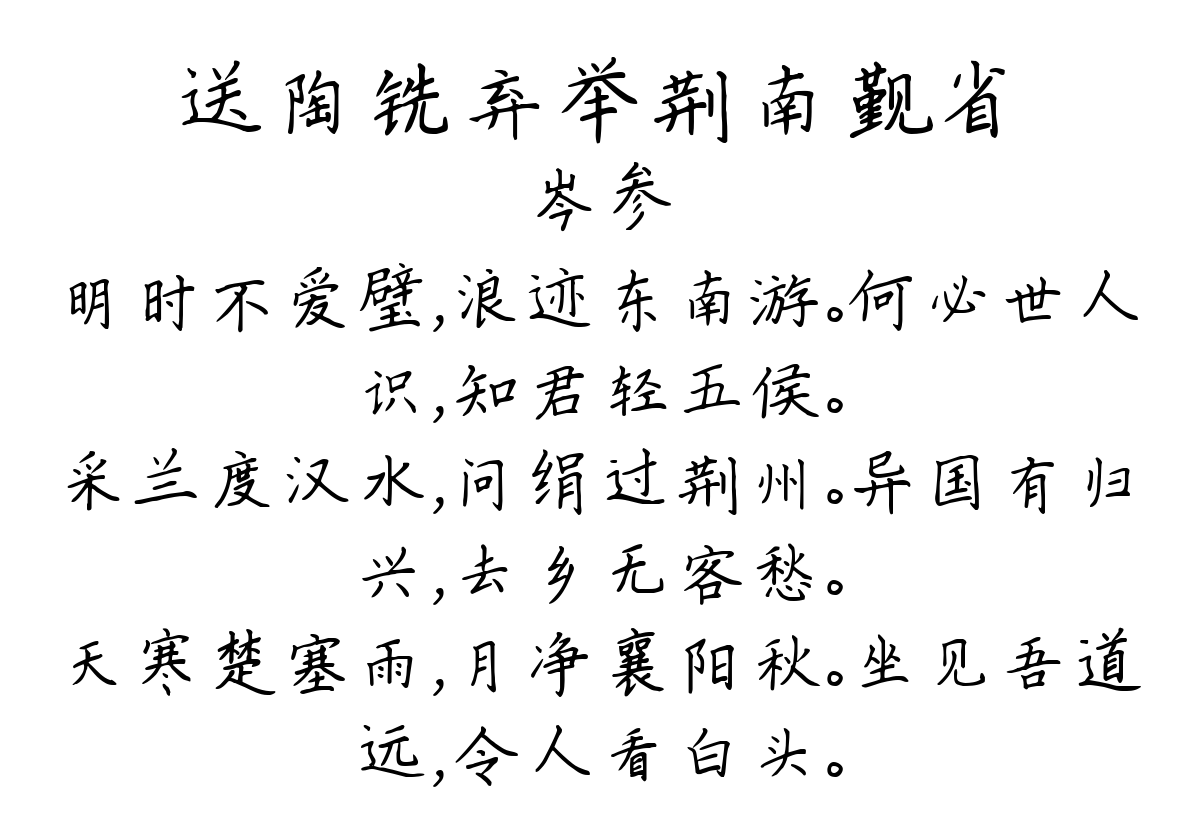 送陶铣弃举荆南觐省
岑参
明时不爱璧,浪迹东南游。何必世人
识,知君轻五侯。
采兰度汉水,问绢过荆州。异国有归
兴,去乡无客愁。
天寒楚塞雨,月净襄阳秋。坐见吾道
远,令人看白头。